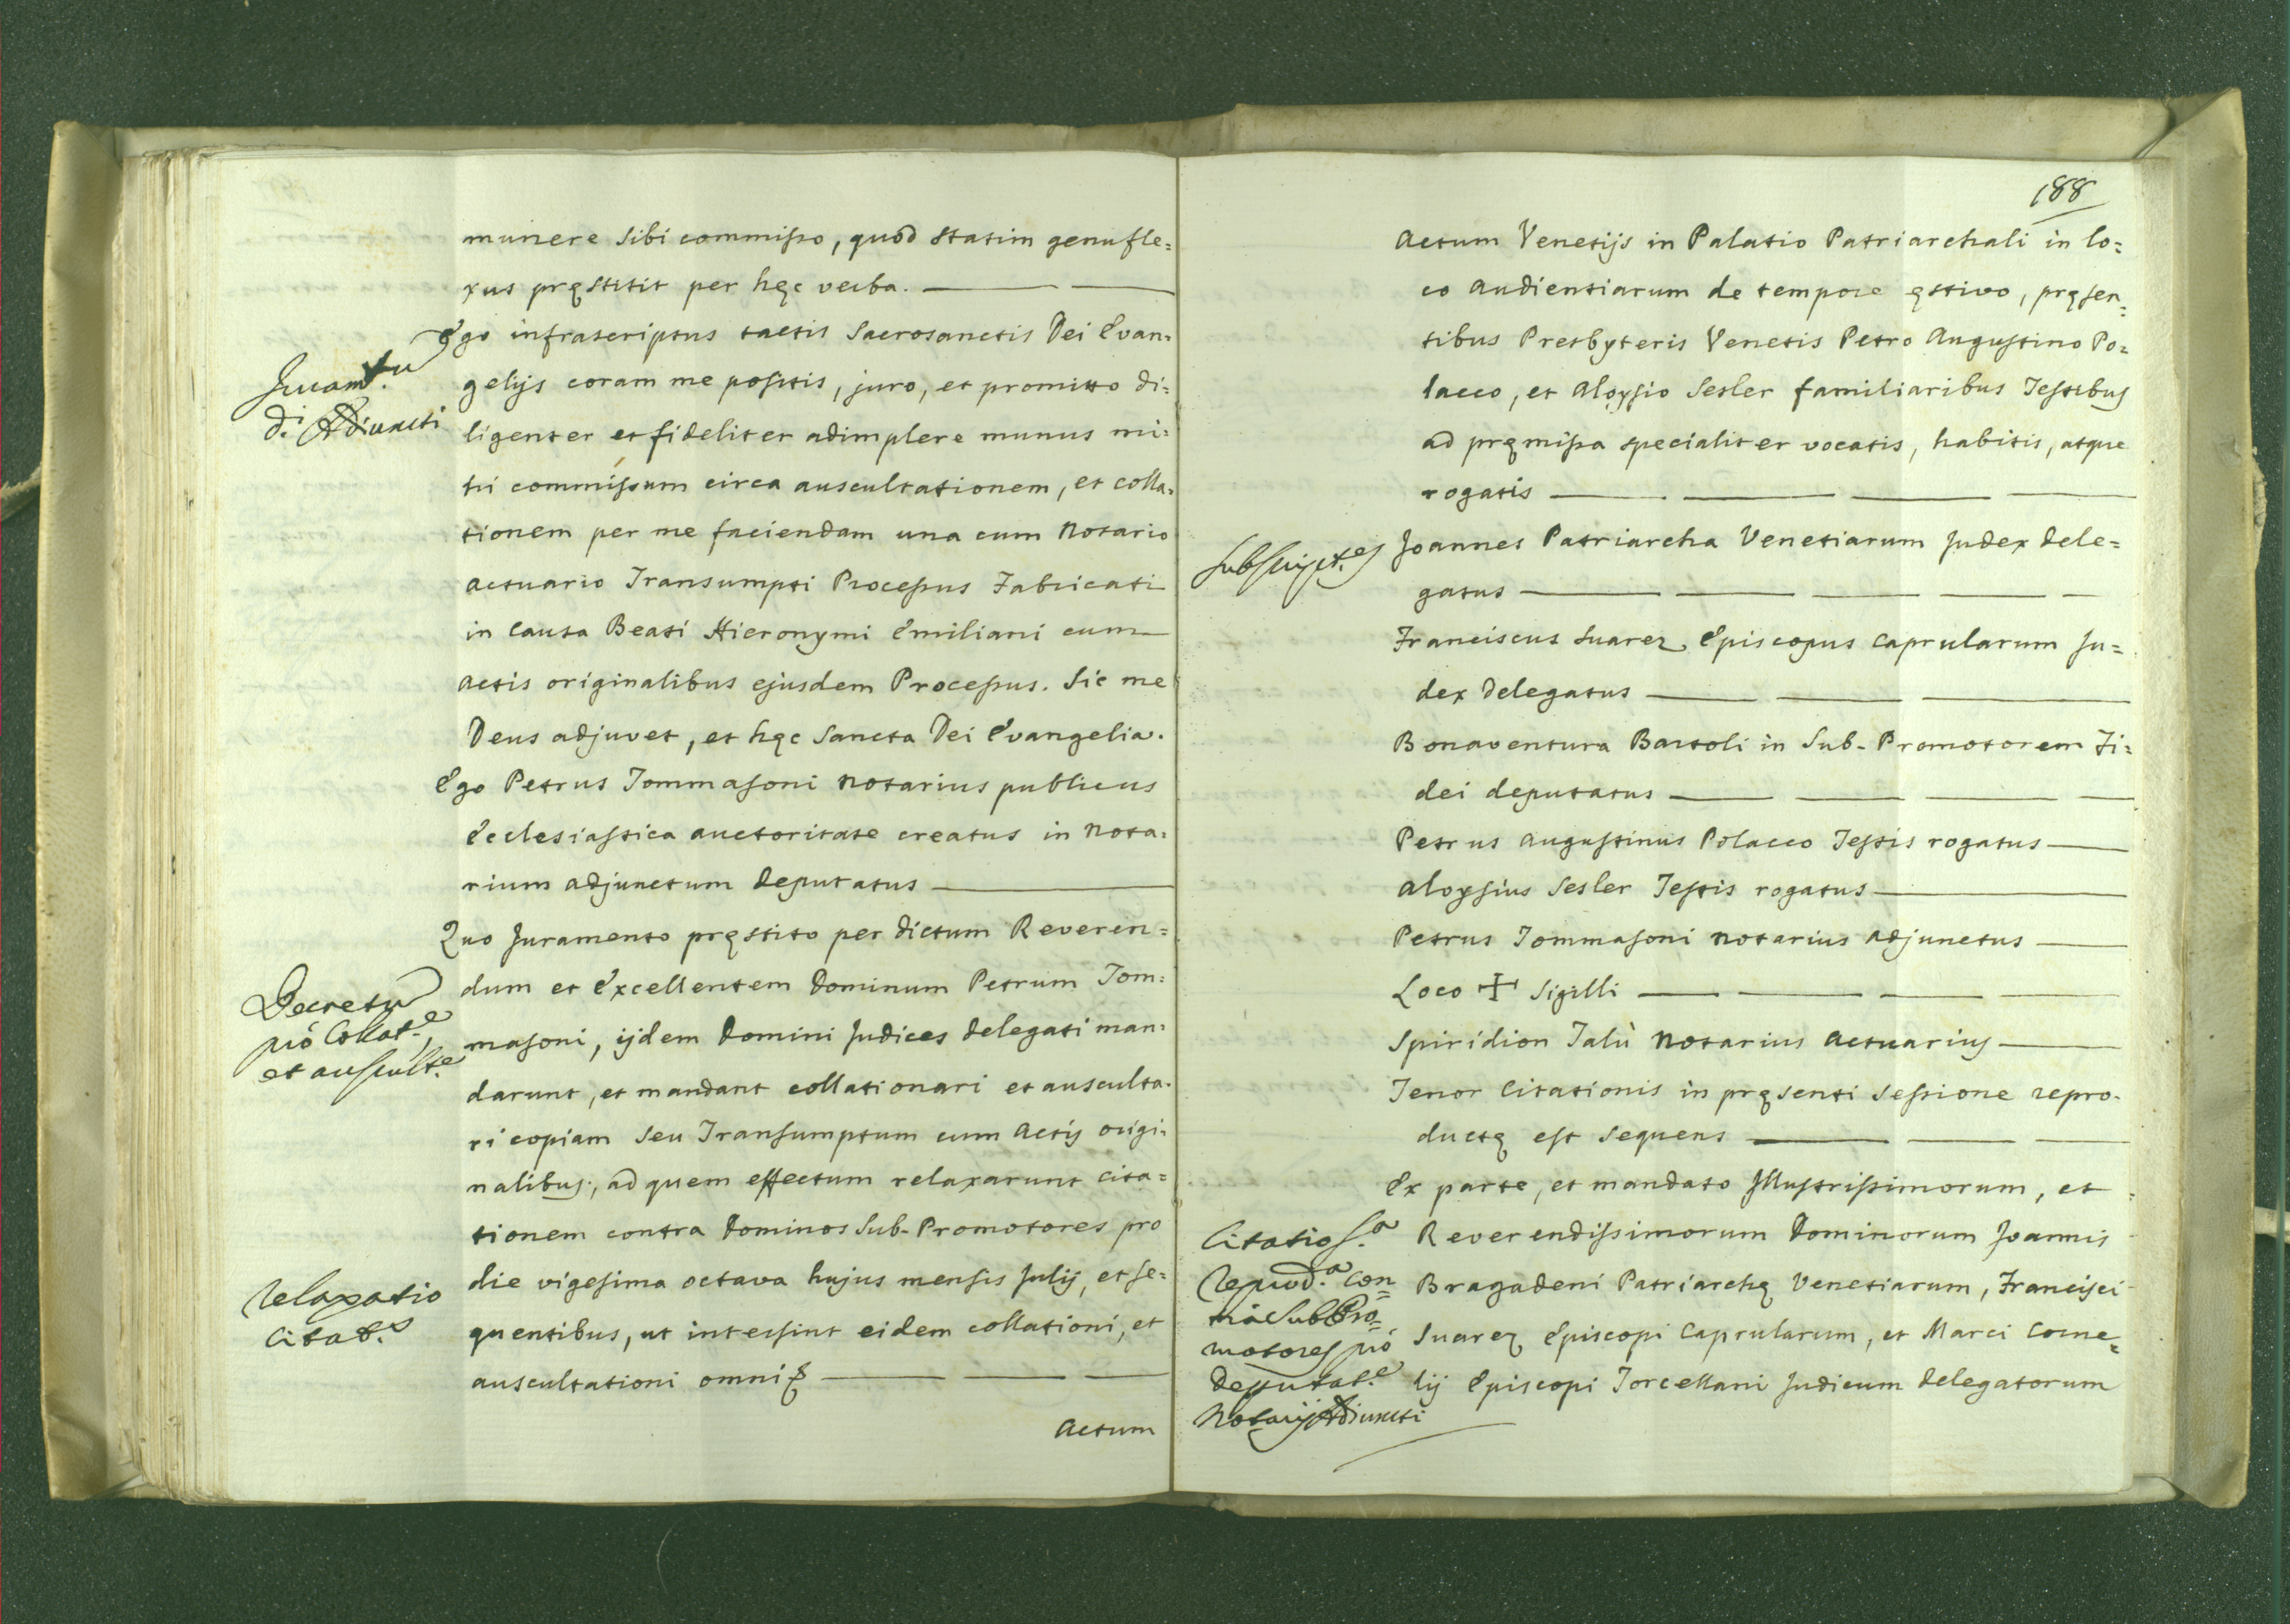 munere sibi commisso, quod statim genufle=
xus pręstitit per hęc verba.
Ego infrascriptus tactis Sacrosanctis Dei Evan=
Juram.tu
gelijs coram me positis, juro, et promitto di=
d.i Adiuncti
ligenter et fideliter adimplere munus mi=
hi commissum circa auscultationem, et colla=
tionem per me faciendam una cum Notario
Actuario Transumpti Processus Fabricati
in Causa Beati Hieronymi Emiliani cum
Actis originalibus ejusdem Processus. Sic me
Deus adjuvet, et hęc Sancta Dei Evangelia.
Ego Petrus Tommasoni Notarius publicus
Ecclesiastica auctoritate creatus in Nota=
rium adjunctum Deputatus
Quo Juramento pręstito per dictum Reveren=
Decretu
dum et Excellentem Dominum Petrum Tom=
pro Collat.e,
masoni, ijdem Domini Judices Delegati man=
et auscult.e
darunt, et mandant collationari et ausculta=
ri copiam seu Transumptum cum Actis origi=
nalibus, ad quem effectum relaxarunt cita=
tionem contra Dominos Sub-Promotores pro
Relaxatio
die vigesima octava hujus mensis Julij, et se=
Citat.s
quentibus, ut intersint eidem collationi, et
auscultationi omni
Actum
188
Actum Venetijs in Palatio Patriarchali in lo=
co Audientiarum de tempore ęstivo, pręsen=
tibus Presbyteris Venetis Petro Augustino Po=
lacco, et Aloysio Sesler familiaribus Testibus
ad pręmissa specialiter vocatis, habitis, atque
rogatis
Subscript.es
Joannes Patriarcha Venetiarum Judex Dele=
gatus
Franciscus Suarez Episcopus Caprularum Ju=
dex Delegatus
Bonaventura Bartoli in Sub-Promotorem Fi=
dei deputatus
Petrus Augustinus Polacco Testis rogatus
Aloysius Sesler Testis rogatus
Petrus Tommasoni Notarius Adjunctus
Loco ✝ Sigilli
Spiridion Talù Notarius Actuarius
Tenor Citationis in pręsenti Sessione repro=
ductę est sequens
Ex parte, et mandato Illustrissimorum, et
Citatio
Reverendissimorum Dominorum Joannis
Reprod.a con=
Bragadeni Patriarchę Venetiarum, Francisci
tra Sub Pro=
motores pro
Suarez Episcopi Caprularum, et Marci Corne=
Deputat.e
lij Episcopi Torcellani Judicum Delegatorum
Notarij Adiuncti